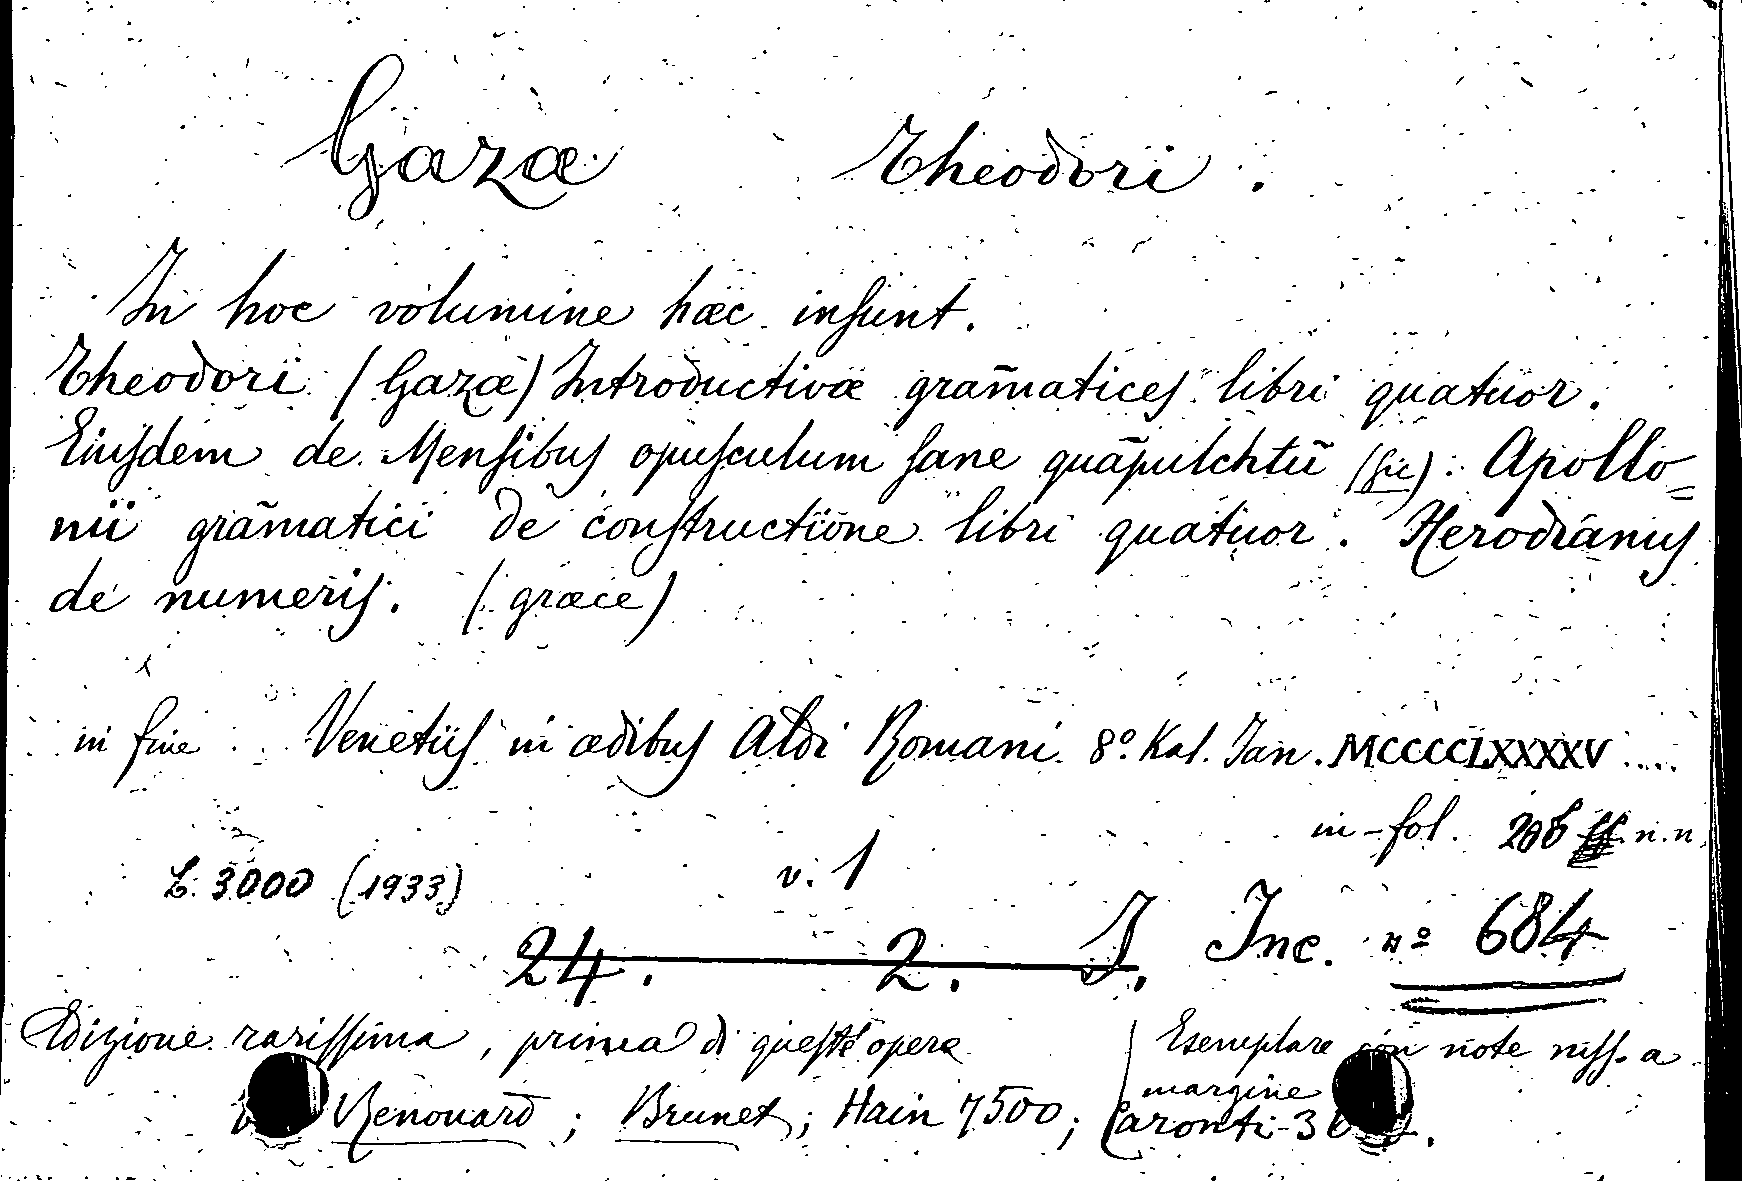 Gazæ Theodori.
In hoc volumine hæc insunt.
Theodori (Gazæ) Introductivæ gram̄atices libri quatuor.
Eiusdem de Mensibus opusculum sane quāpulchtū (sic). Apollo=
nii gram̄atici de constructione libri quatuor. Herodianus
de numeris. (græce)
in fine Venetiis in ædibus Aldi Romani 8º. Kal. Jan. MCCCCLXXXXV.....
in-fol. ff. n. n.
L. 3000 (1933) v. 1
24. 2. I. Inc. nº 684
Edizione rarissima, prima di queste opere
Esemplare con note mss. a
margine
Renouard; Brunet; Hain 7500; Caronti-36